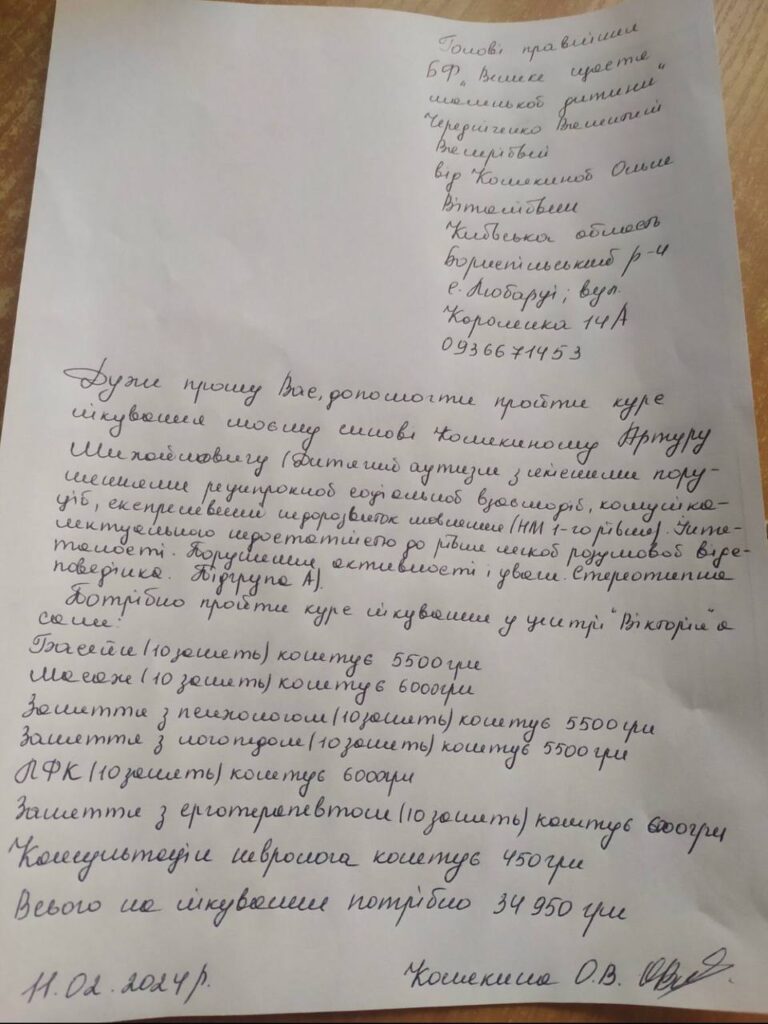 Голові правління
БФ „Велике щастя
маленької дитини"
Чередніченко Валентині
Валеріївні
від Кошкиної Ольги
Віталіївни
Київська область
Бориспільський р-н
с. Любарці, вул.
Короленка 14А
0936671453
Дуже прошу Вас, допомогти пройти курс
лікування моєму синові Артуру
Михайловичу (Дитячий аутизм з якісними пору-
шеннями реципрокної соціальної взаємодії, комуніка-
ції, експресивний недорозвиток мовлення (НМ 1-го рівня). Інте-
лектуального недостатністю до рівня легкої розумової відс-
талості. Порушення активності і уваги. Стереотипна
поведінка. Підгрупа А).
Потрібно пройти курс лікування у центрі "Вікторія" а
саме:
Басейн (10 занять) коштує 5500 грн
Масаж (10 занять) коштує 6000 грн
Заняття з психологом (10 занять) коштує 5500 грн
Заняття з логопедом (10 занять) коштує 5500 грн
ЛФК (10 занять) коштує 6000 грн
Заняття з ерготерапевтом (10 занять) коштує 6000 грн
Консультація невролога коштує 450 грн
Всього на лікування потрібно 34 950 грн
11.02.2024 р. О.В.